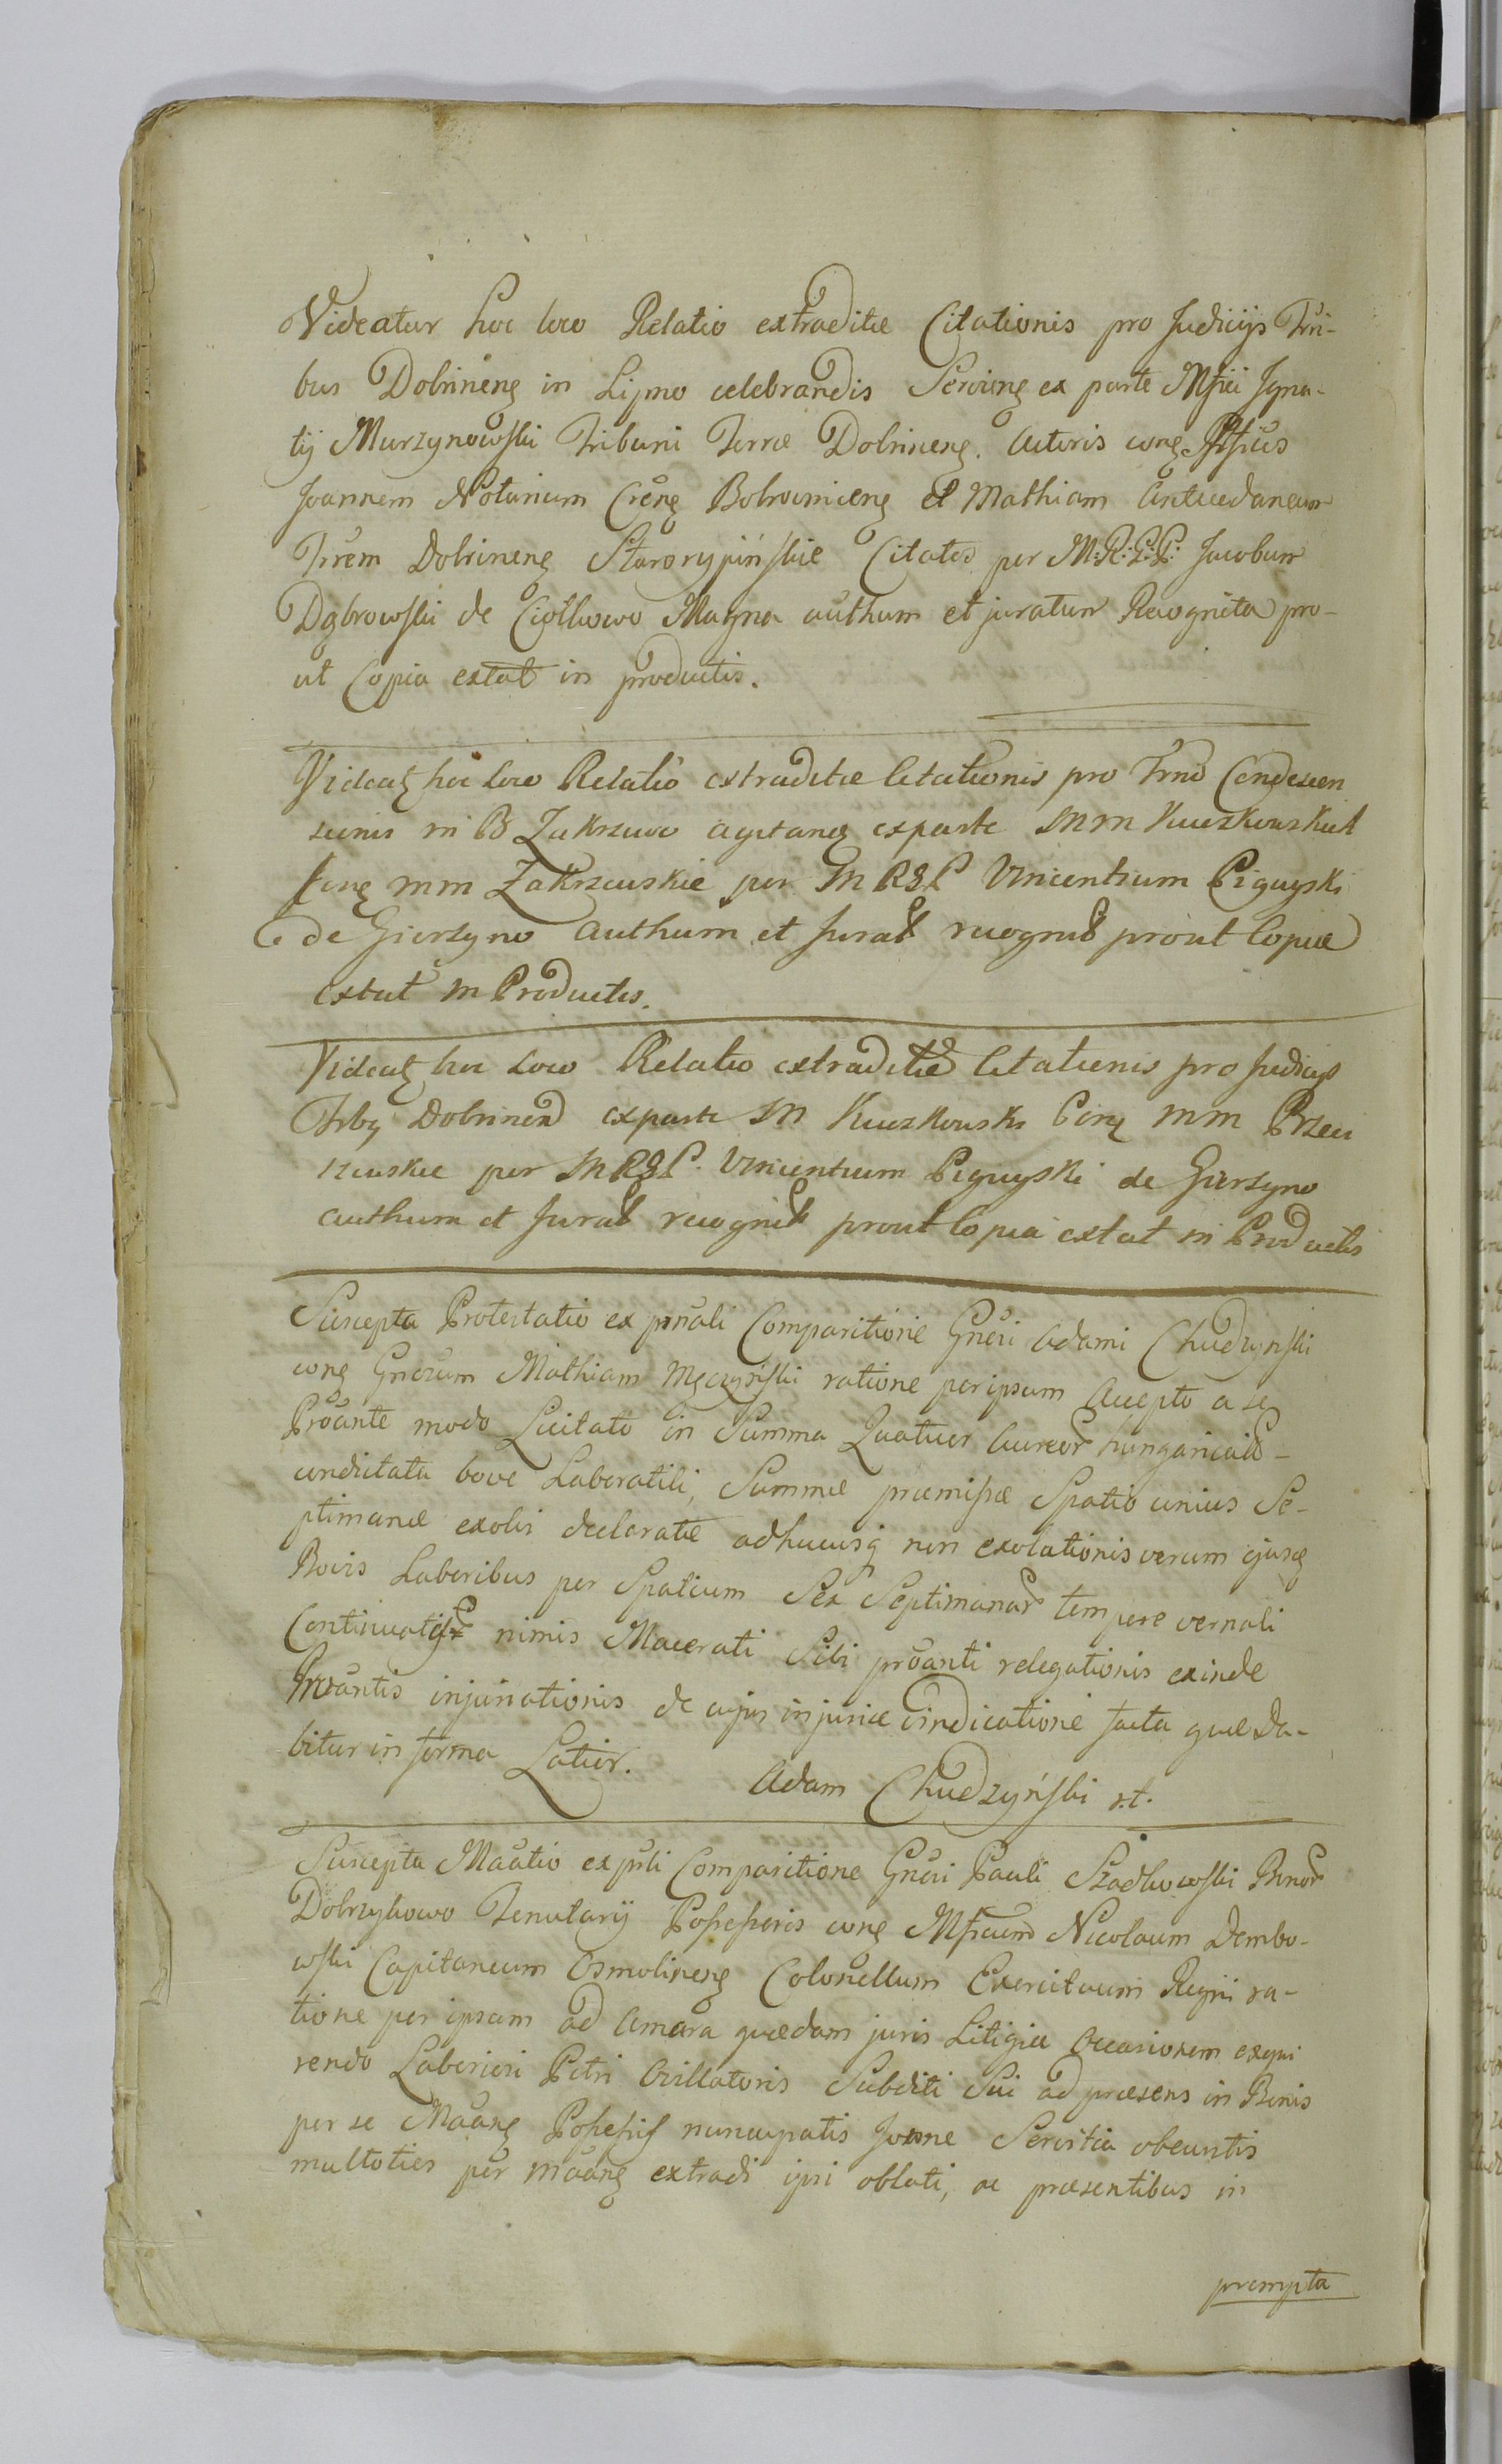 Videatur hoc loco Relatio extraditæ Citationis pro Judicijs Trri-
bus Dobrineñ in Lipno celebrandis Servieñ ex parte Mfici Igna-
tij Murzynowski Tribuni Terræ Dobrineñ. Actoris coñ Mficos
Joannem Notarium Creñ Bobrowniceñ et Mathiam Antecedaneum
Trrem Dobrineñ Starorypińskie Citatos per M:R:G:P: Jacobum
Dąbrowski de Ciółkowo Magna authum et juratum Recognita pro-
ut Copia extat in productis.
Videatꝫ hoc loco Relatio extraditæ Citationis pro Trno Condescen
sionis in B Zakrzewo agitaneꝫ exparte M M Kuczkowskich
Coneꝫ MM Zakrzewskie per M R G P Vincentium Piguyski
de Gierzyno authum et Jurat recognit prout Copia
extat in Productis.
Videatꝫ hoc loco Relatio extraditæ Citationis pro Judicijs
Trbꝫ Dobrinen exparte M Kuczkowski Coneꝫ MM Przeci
szewskie per M R G P. Vincentium Piguyski de Gierzyno
authum et Jurat recognit prout Copia extat in Productis
Suscepta Protestatio ex prsñali Comparitione Gnêri Adami Chudzyński
coneꝫ Gnêrum Mathiam Męczyński ratione per ipsum Accepto a se
Proante modo Licitato in Summa Quatuor Aureor hungaricalr̄-
condictata bove Laboratili, Summæ præmissæ Spatio unius Se-
ptimanæ exolvi declaratæ adhucusq̨ non exolutionis verum ejusdꝫ
Bovis Laboribus per Spatium Sex Septimanar̄ tempore vernali
Continuatis nimis Macerati Sibi proanti relegationis exinde
Proantis injuriationis de cujus injuriæ vindicatione facta quæ Da-
bitur in forma Latior.
Adam Chudzyński s.t.
Suscepta Maatio ex prsli Comparitione Gnêri Pauli Szadkowski Bnor̄
Dobrzykowo Tenutarij Possessoris coneꝫ Mficum Nicolaum Dembo-
wski Capitaneum Osmolineꝫ Colonellum Exercituum Regni ra-
tione per ipsum ad Amara quædam juris Litigia Occasionem exqui
rendo Laboriosi Petri Avillatoris Subditi Sui ad præsens in Bonis
per se Maaneꝫ Possessis nuncupatis Servitia obeuntis
multoties per Maaneꝫ extradi ipsi oblati, ac præsentibus in
prompta